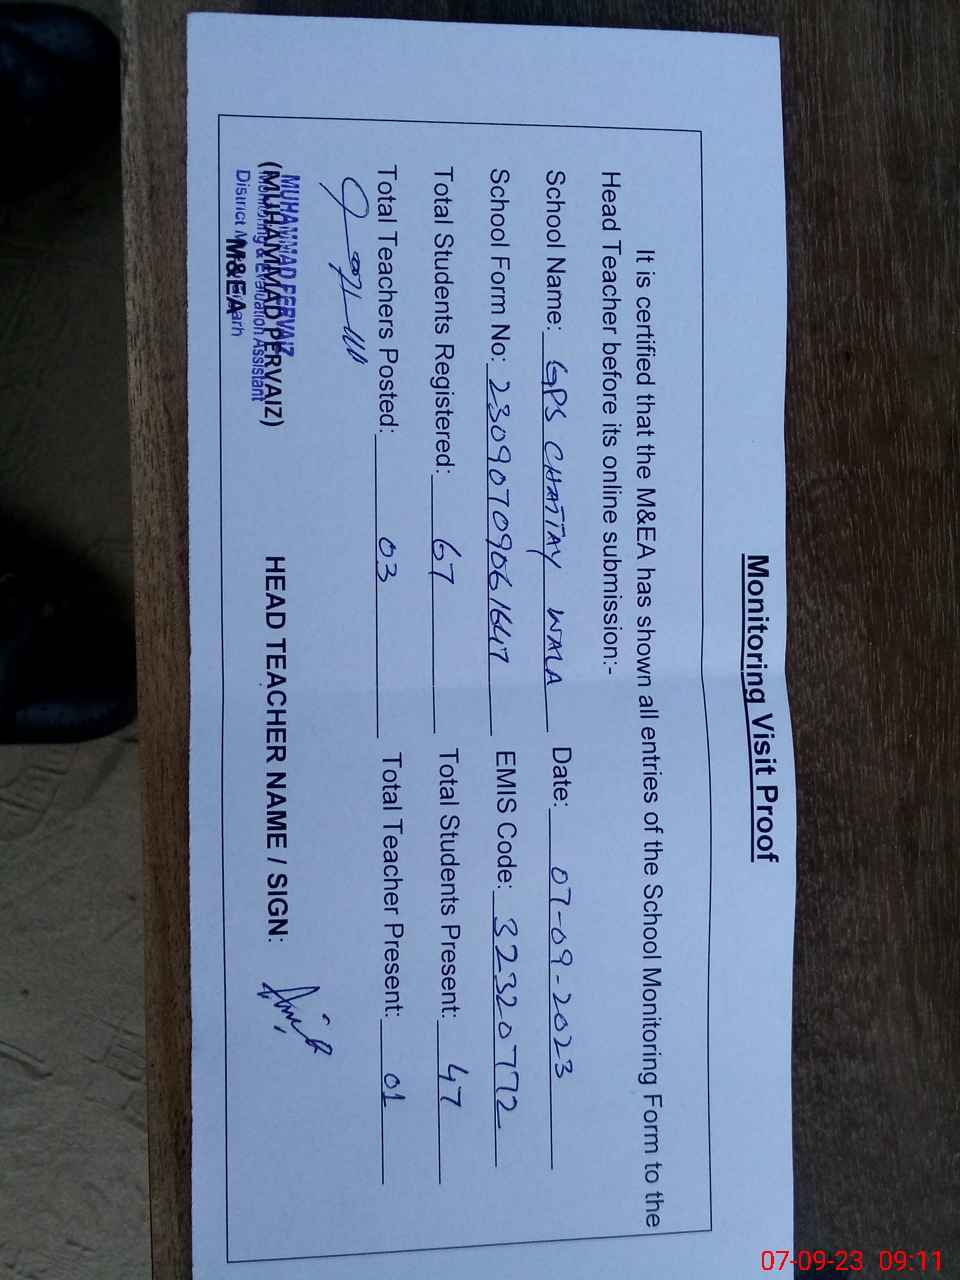 Monitoring Visit Proof
It is certified that the M&EA has shown all entries of the School Monitoring Form to the
Head Teacher before its online submission:-
School Name: GPS CHATTAY WALA Date: 07-09-2023
School Form No: 23090709061647 EMIS Code: 32320772
Total Students Registered: 67 Total Students Present: 47
Total Teachers Posted: 03 Total Teacher Present: 01
MUHAMMAD PERVAIZ
(MUHAMMAD PERVAIZ) HEAD TEACHER NAME / SIGN:
Monitoring & Evaluation Assistant
M&EA
District
07-09-23 09:11